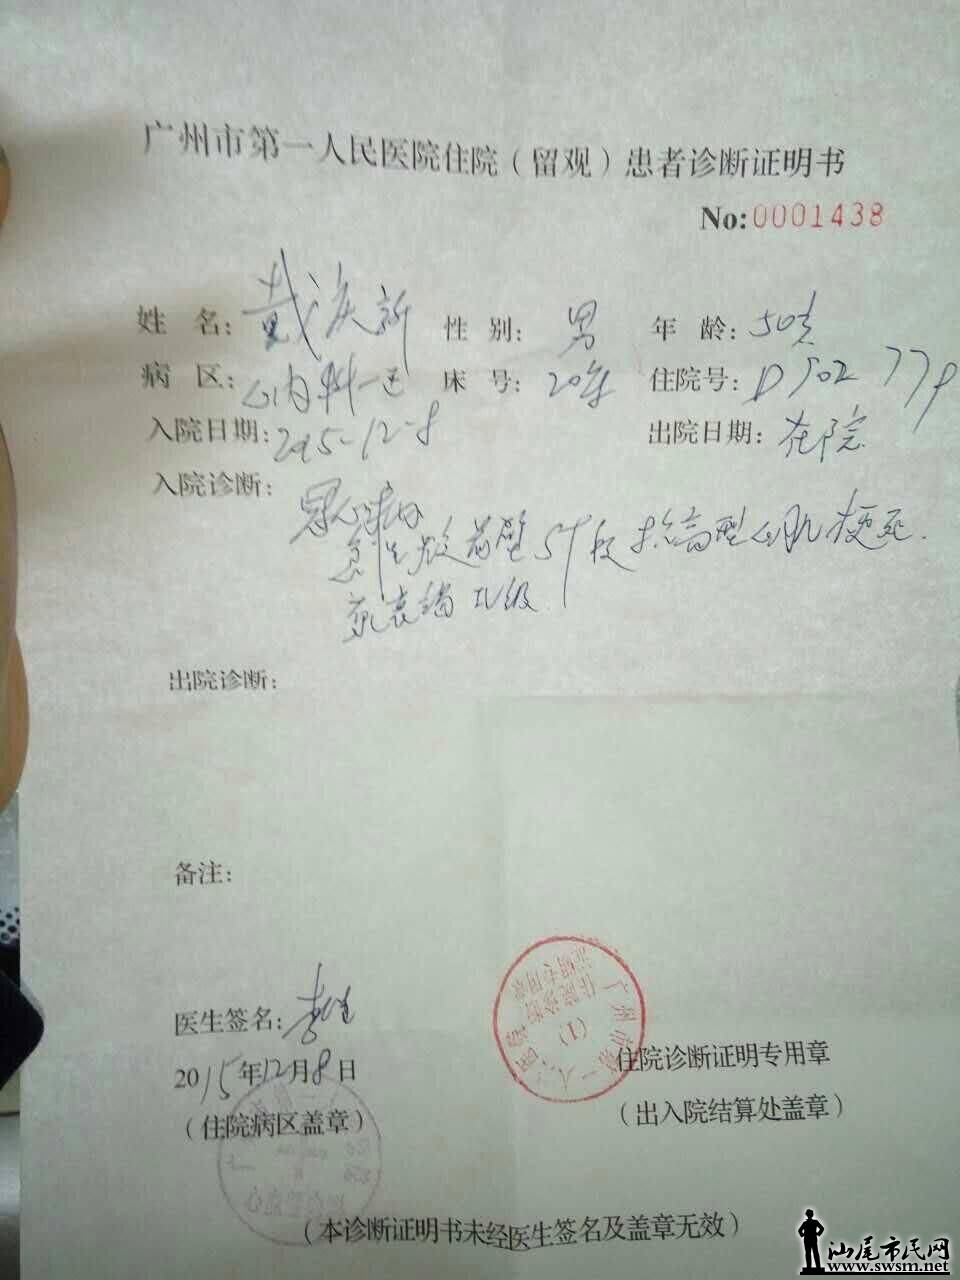 广州市第一人民医院住院（留观）患者诊断证明书
No:0001438
姓 名: 戴庆新 性 别: 男 年 龄: 50岁
病 区: 心内科一区 床 号: 20床 住院号: D502779
入院日期: 2015-12-8 出院日期: 在院
入院诊断:
冠心病
急性 前壁ST段抬高型心肌梗死.
泵衰竭IV级
出院诊断:
备注:
医生签名:
2015年12月8日
（住院病区盖章）
广州市第一人民医院
(1)
住院诊断证明专用章
（出入院结算处盖章）
（本诊断证明书未经医生签名及盖章无效）
汕尾市民网
www.swsm.net